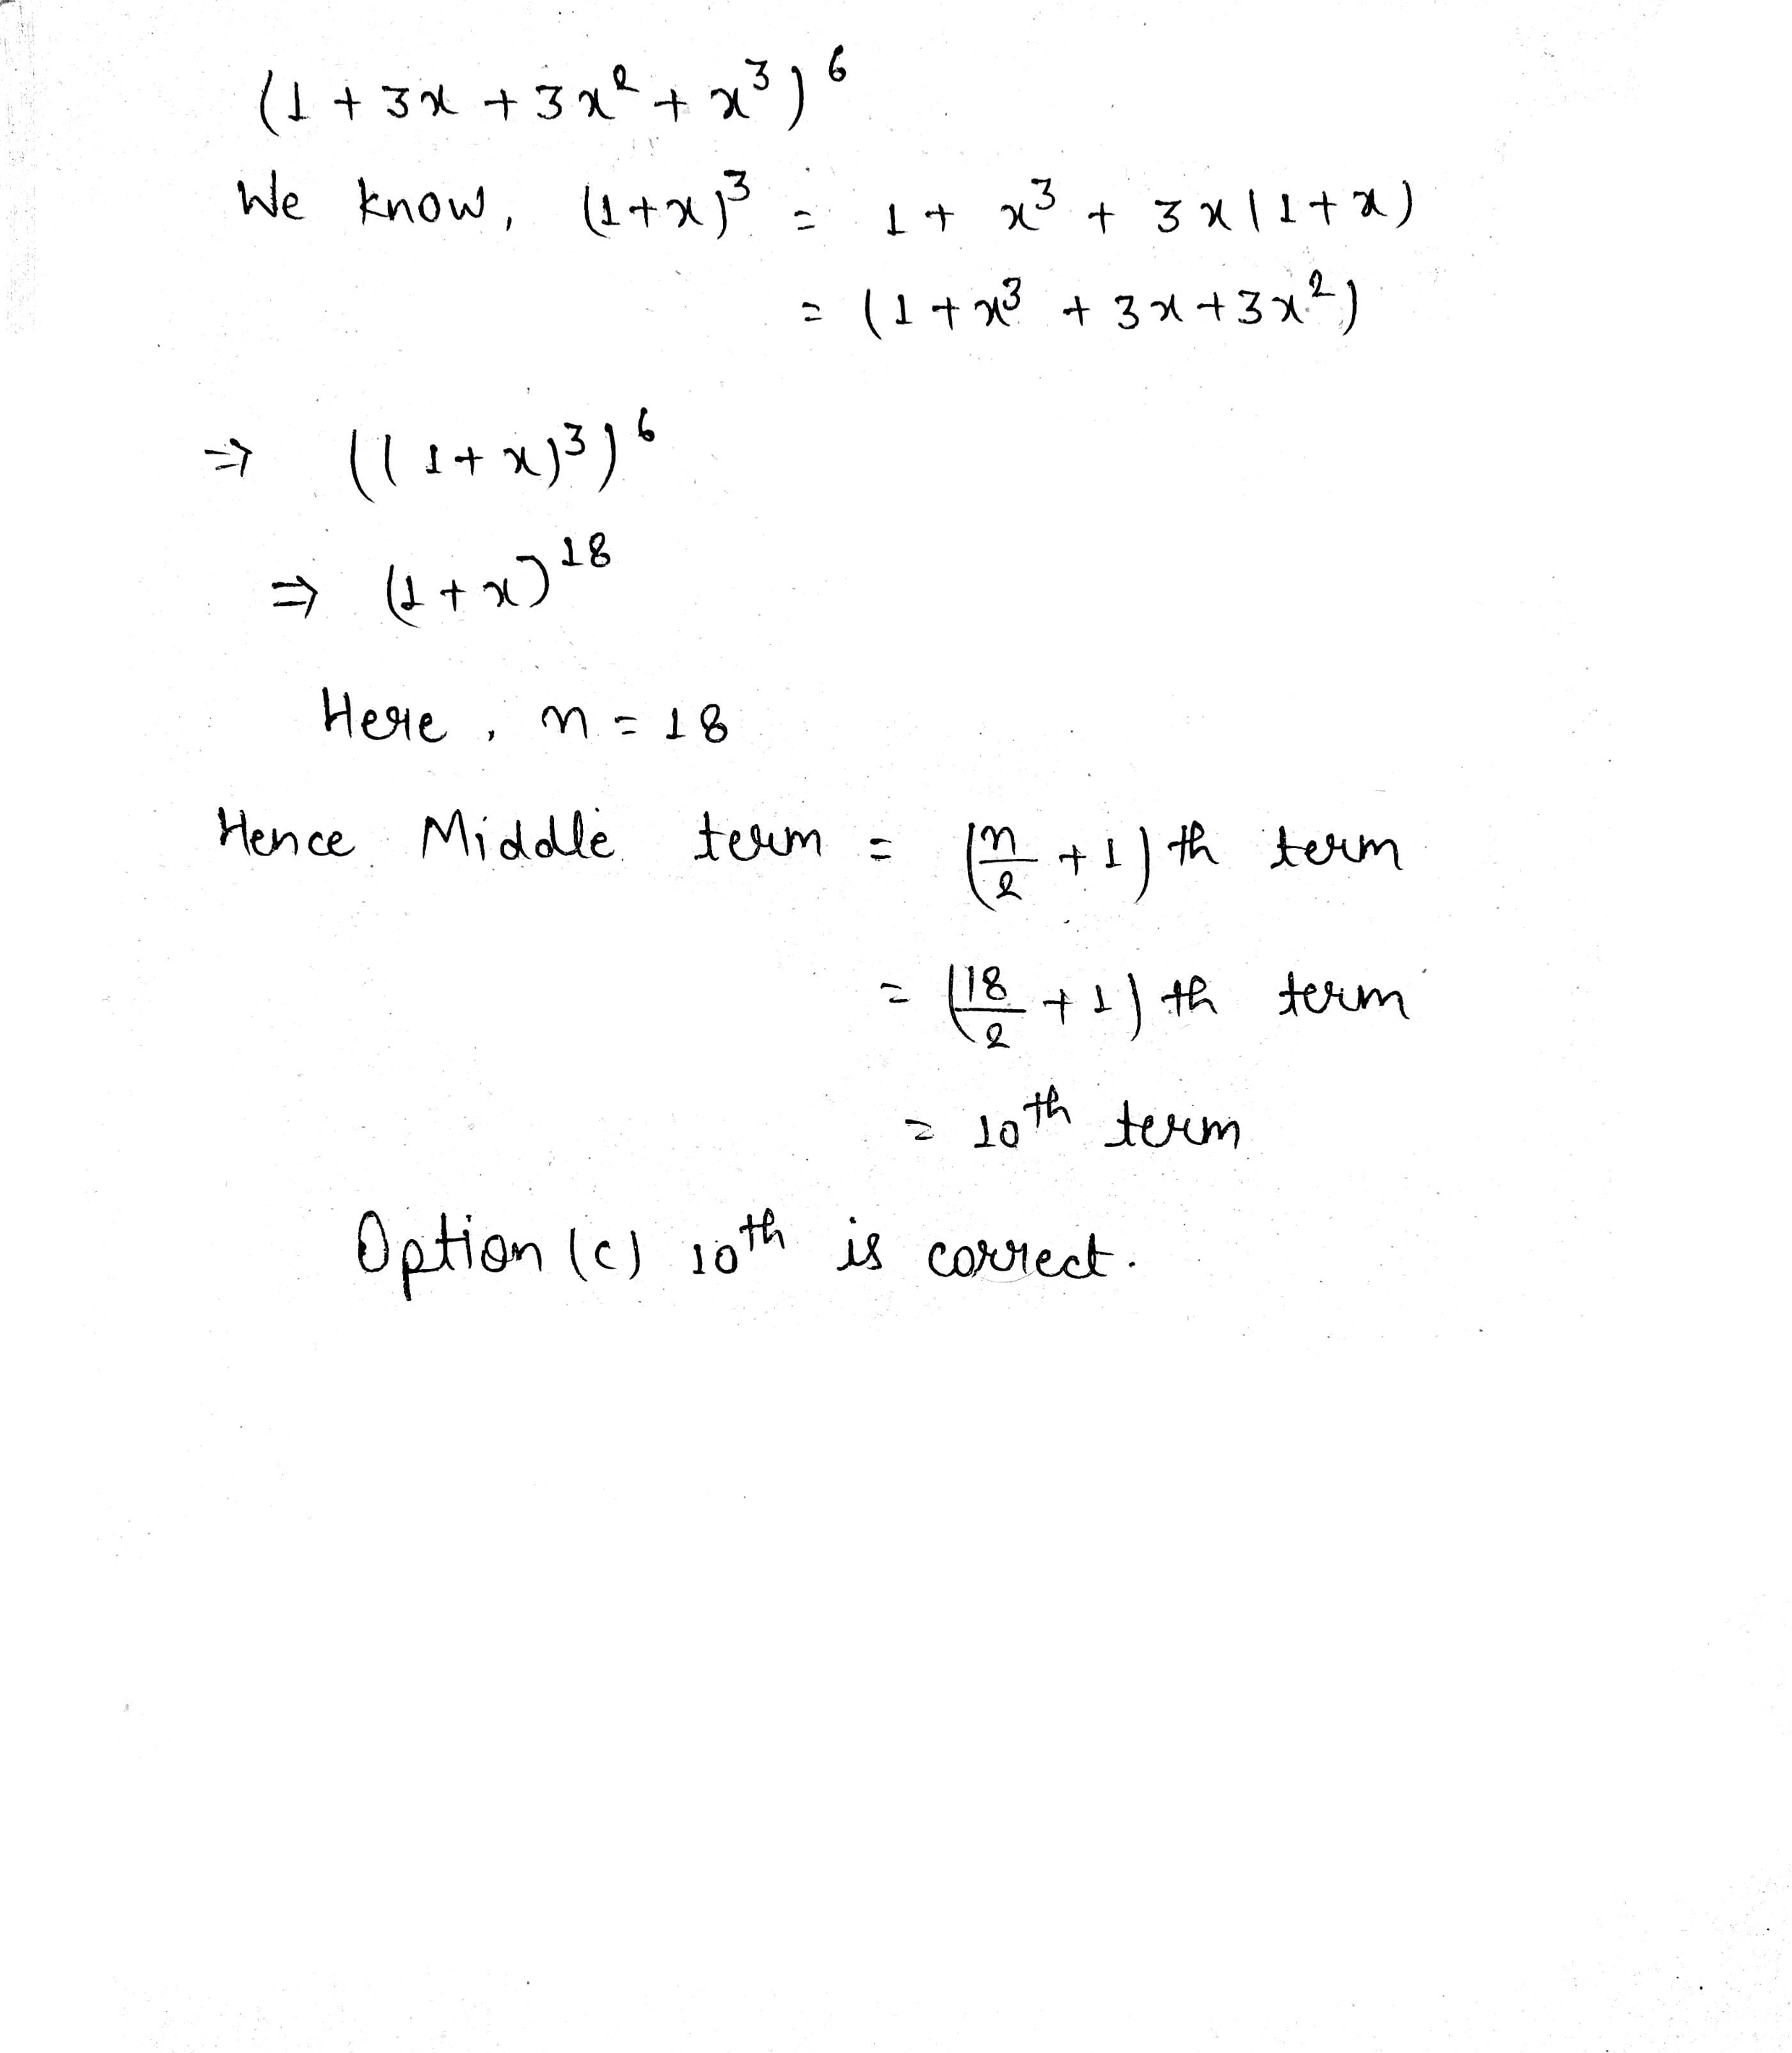 (1 + 3x + 3x² + x³)⁶
We know, (1+x)³ = 1 + x³ + 3x(1+x)
= (1 + x³ + 3x + 3x²)
⇒ ((1+x)³)⁶
⇒ (1+x)¹⁸
Here, n = 18
Hence Middle term = (n/2 + 1) th term
= (18/2 + 1) th term
= 10th term
Option (c) 10th is correct.